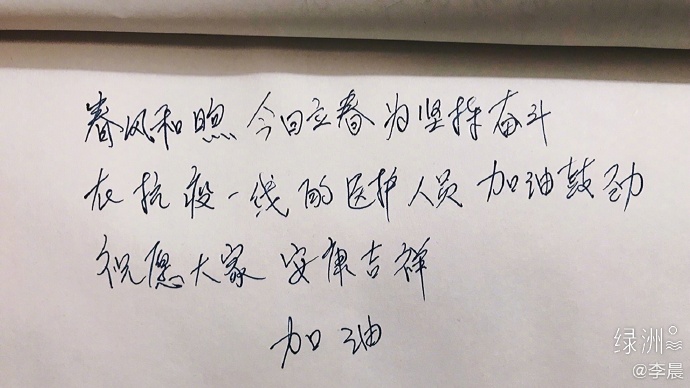 春风和煦 今日立春 为坚持奋斗
在抗疫一线的医护人员 加油鼓劲
祝愿大家 安康吉祥
加油
绿洲
@李晨